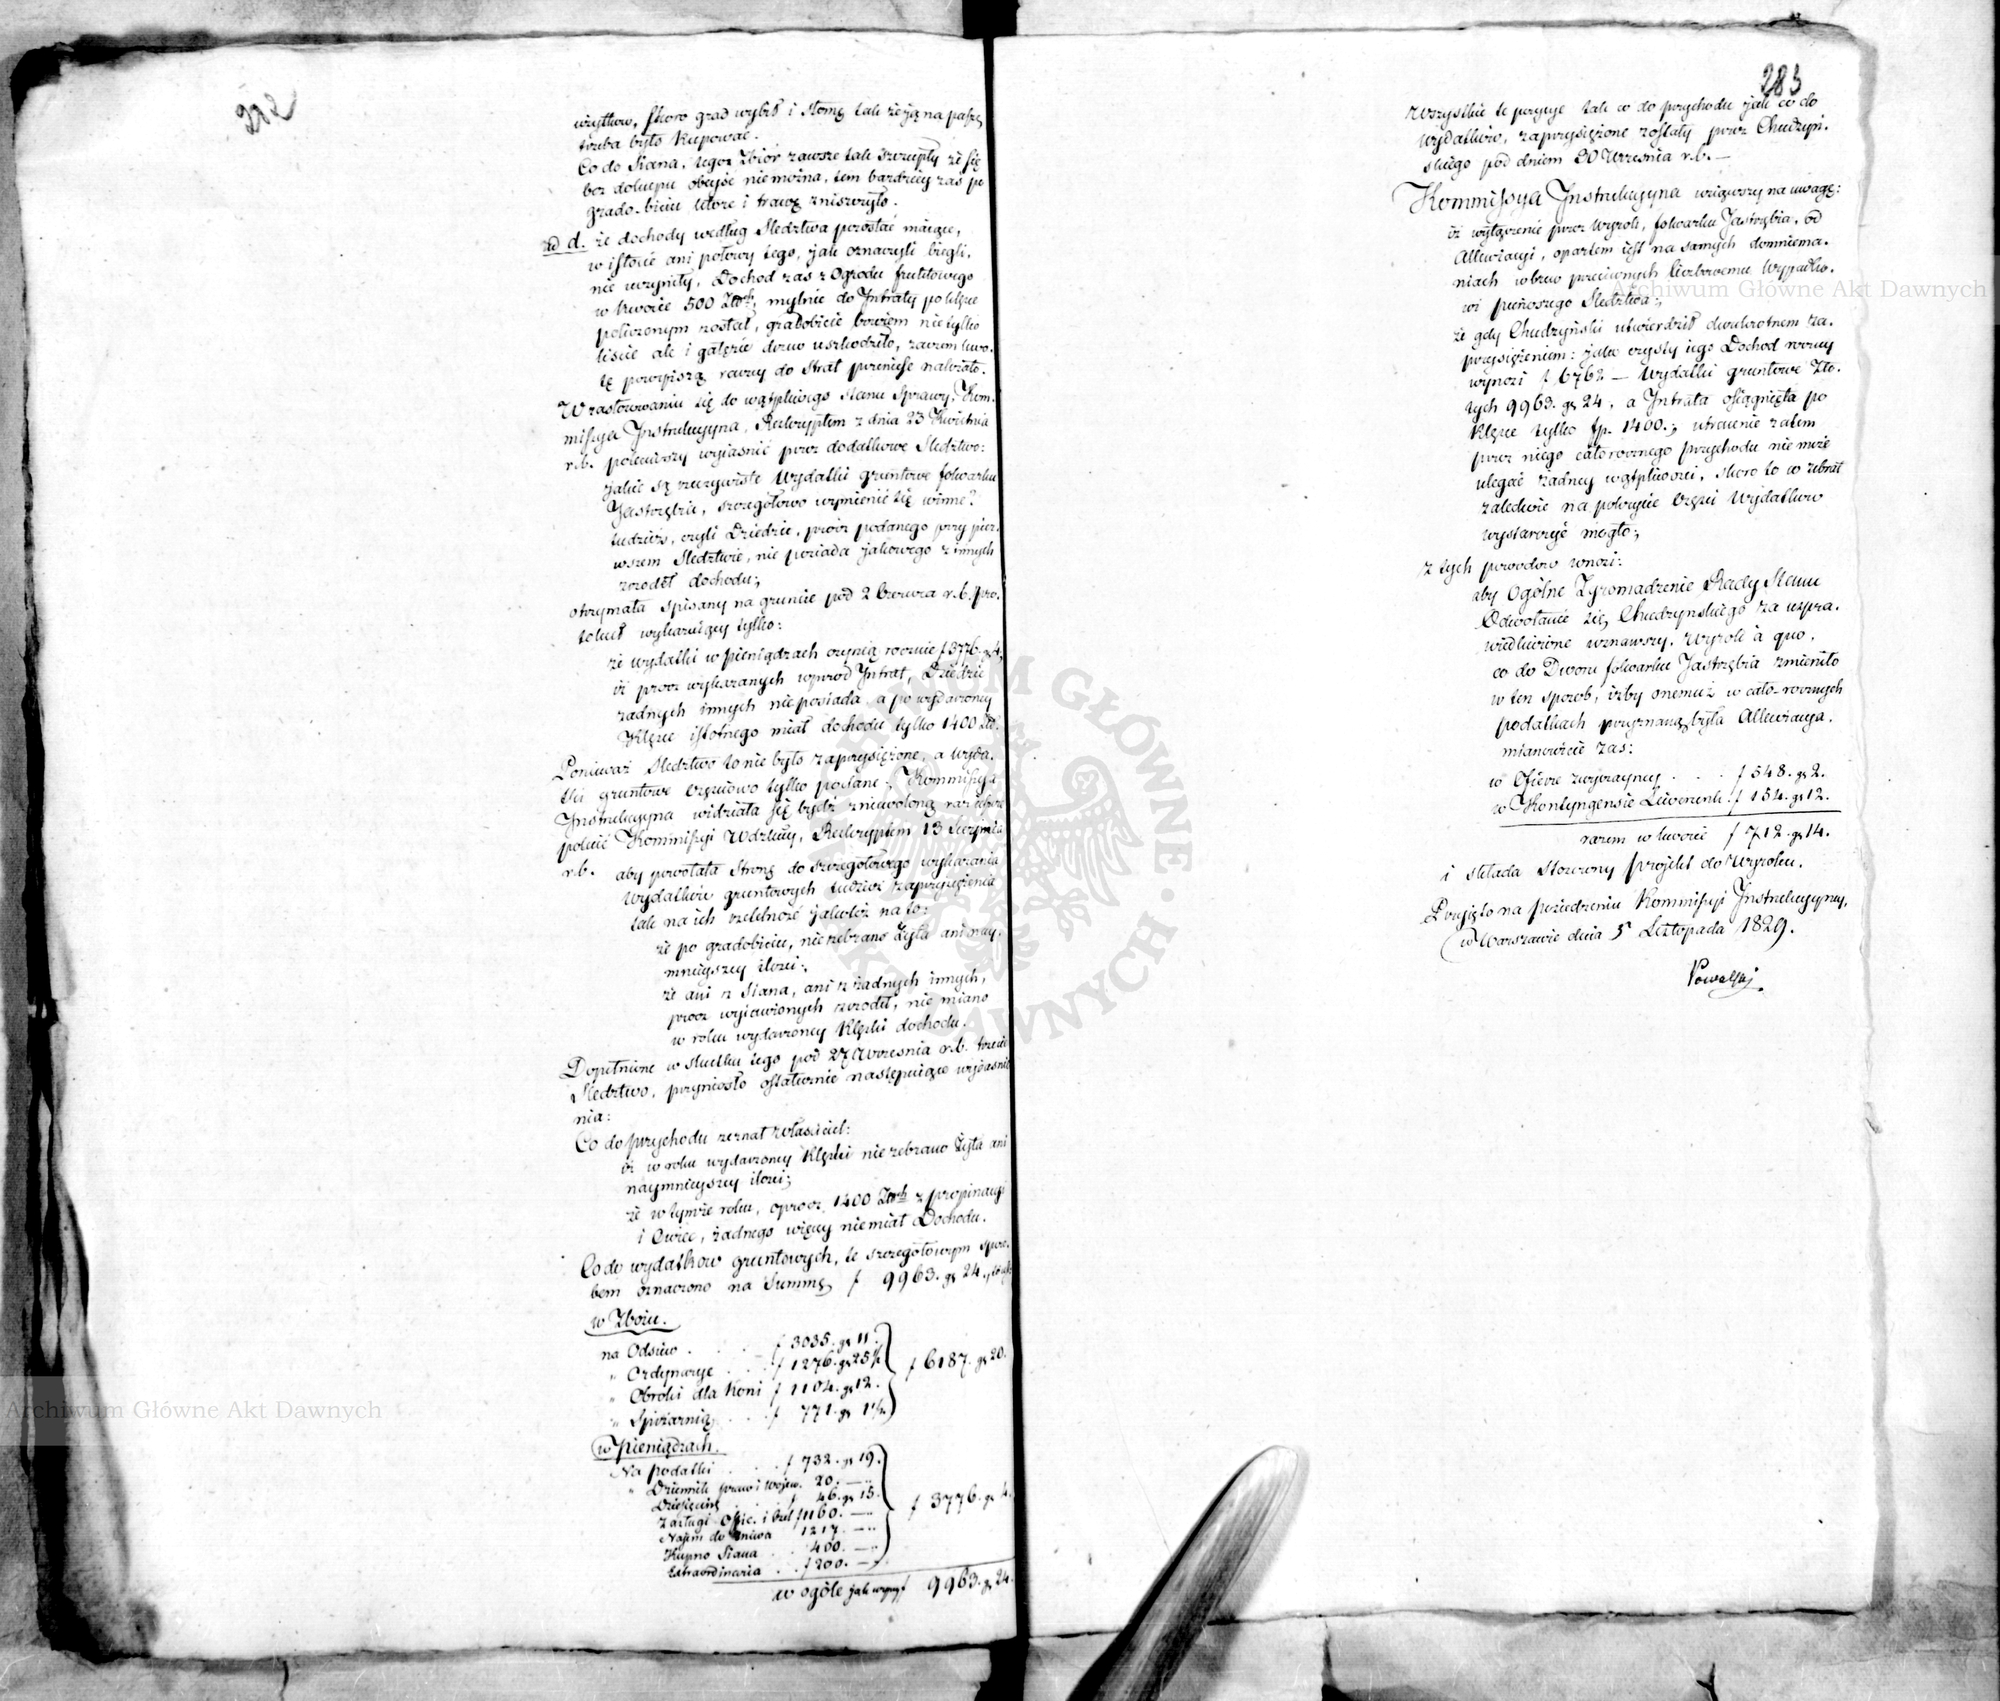 292
użytków, skoro grad wybił i słomę tak że ją na paszę
trzeba było kupować.
Co do Siana, tegoż Zbiór zawsze tak szczupły że się
bez dokupu obejść nie można, tem bardziej zaś po
grado-biciu które i trawę zniszczyło.
ad d. że dochody według Sledztwa pozostać maiące,
w istocie ani połowy tego, jak oznaczyli biegli,
nie uczyniły, Dochod zas z Ogrodu fruktowego
w kwocie 500 Złotch, mylnie do Intraty po klęsce
policzonym został, gradobicie bowiem nie tylko
liście ale i gałęzie drzew uszkodziło, zatem kwo-
tę powyższą raczej do Strat przenieść należało.
W zastosowaniu się do wątpliwego stanu Sprawy, Kom-
missya Instrukcyyna, Reskryptem z dnia 23 Kwietnia
r.b. poleciwszy wyiasnić przez dodatkowe Sledztwo:
jakie są rzeczywiste Wydatki gruntowe folwarku
Jastrzębia, szczegółowo wymienić się winne?
tudzież, czyli Dziedzic, prócz podanego przy pier-
wszem Sledztwie, nie posiada jakowego z innych
zrodeł dochodu;
otrzymała spisany na gruncie pod 2 Czerwca r.b. Pro-
tokuł wykazuiący tylko:
że wydatki w pieniądzach czynią rocznie f 3776. gr 4,
iż prócz wykazanych wprzód Intrat, Dziedzic
żadnych innych nie posiada, a po wydarzoney
Klęsce istotnego miał dochodu tylko 1400 Złot.
Ponieważ Sledztwo to nie było zaprzysiężone, a wyda-
tki gruntowe częściowo tylko podane; Kommissya
Instrukcyyna widziała się bydź zniewoloną raz jeszcze
polecić Kommissyi Wdzkiey, Reskryptem 13 Sierpnia
r.b. aby powołała Stronę do szczegółowego wykazania
Wydatków gruntowych tudzież zaprzysiężenia
tak na ich rzetelność jakoteż na to:
że po gradobiciu, nie zebrano Żyta ani nay-
mnieyszey ilości;
że ani z Siana, ani z żadnych innych,
procz wyiawionych zrodeł, nie miano
w roku wydarzoney Klęski dochodu.
Dopełnione w skutku tego pod 27 Września r.b. trzecie
Sledztwo, przyniosło ostatecznie następuiące wyiaśnie
nia:
Co do przychodu zeznał właściciel:
iż w roku wydarzoney Klęski nie zebrano Żyta ani
naymnieyszey ilości;
że w tymże roku, oprócz 1400 Złotch z propinacyi
i Owiec, żadnego więcey nie miał Dochodu.
Co do wydatkow gruntowych, te szczegółowym sposo-
bem oznaczono na Summę f 9963. gr 24.
w Zbożu.
na Odsiew . . . f 3035. gr 11.
" Ordynaryę . . . f 1276. gr 25½ f 6187. gr 20.
" Obroki dla Koni f 1104. gr 12.
" Spiżarnią . . . f 771. gr 1½
w Pieniądzach.
Na podatki . . . f 732. gr 19.
" Dziennik praw i Wojew. 20. —
Dziesięcinę f 46. gr 15. f 3776. gr 4.
Zasługi Ofic. i Czel. f 1160. —
Najem do żniwa 1217. —
Kupno Siana . . 400. —
Extraordinaria . . f 200. —
w ogóle jak wyżey f 9963. gr 24.
283
Wszystkie te pozycye tak co do przychodu jak co do
wydatków, zaprzysiężone zostały przez Chudzyń-
skiego pod dniem 30 Września r.b. —
Kommissya Instrukcyyna wziąwszy na uwagę:
iż wyłączenie przez Wyrok, folwarku Jastrzębia, od
Allewiacyi, opartem iest na samych domniema-
niach wbrew przeciwnych liczbowemu Wypadko-
wi pierwszego Sledztwa;
że gdy Chudzyński utwierdził dwukrotnem za-
przysiężeniem: jako czysty iego Dochod roczny
wynosi f 6762 — Wydatki gruntowe Zło-
tych 9963. gr 24, a Intrata osiągnięta po
Klęsce tylko fp. 1400.; utracenie zatem
przez niego całorocznego przychodu nie może
ulegać żadney wątpliwości, skoro to co zebrał
zaledwie na pokrycie Części Wydatków
wystarczyć mogło;
z tych powodów wnosi:
aby Ogólne Zgromadzenie Rady Stanu
Odwołanie się Chudzyńskiego za uspra-
wiedliwione uznawszy, Wyrok à quo,
co do Dworu folwarku Jastrzębia zmieniło
w ten sposob, iżby onemuż w cało-rocznych
podatkach przyznaną była Allewiacya,
mianowicie zas:
w Ofierze zwyczayney . . . f 548. gr 2.
w Kontyngensie Liwerunk. f 154. gr 12.
razem w kwocie f 712. gr 14.
i składa stosowny projekt do Wyroku.
Przyjęto na posiedzeniu Kommissyi Instrukcyyney,
w Warszawie dnia 5 Listopada 1829.
Archiwum Główne Akt Dawnych
Archiwum Główne Akt Dawnych
ARCHIWUM GŁÓWNE AKT DAWNYCH